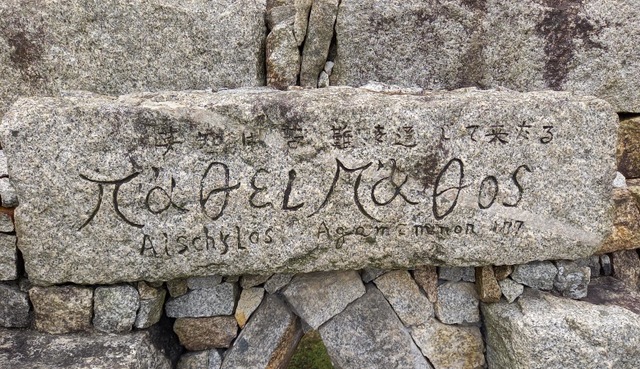 学知は苦難を通して来たる
πάθει μάθος
Aischylos Agamemnon 177